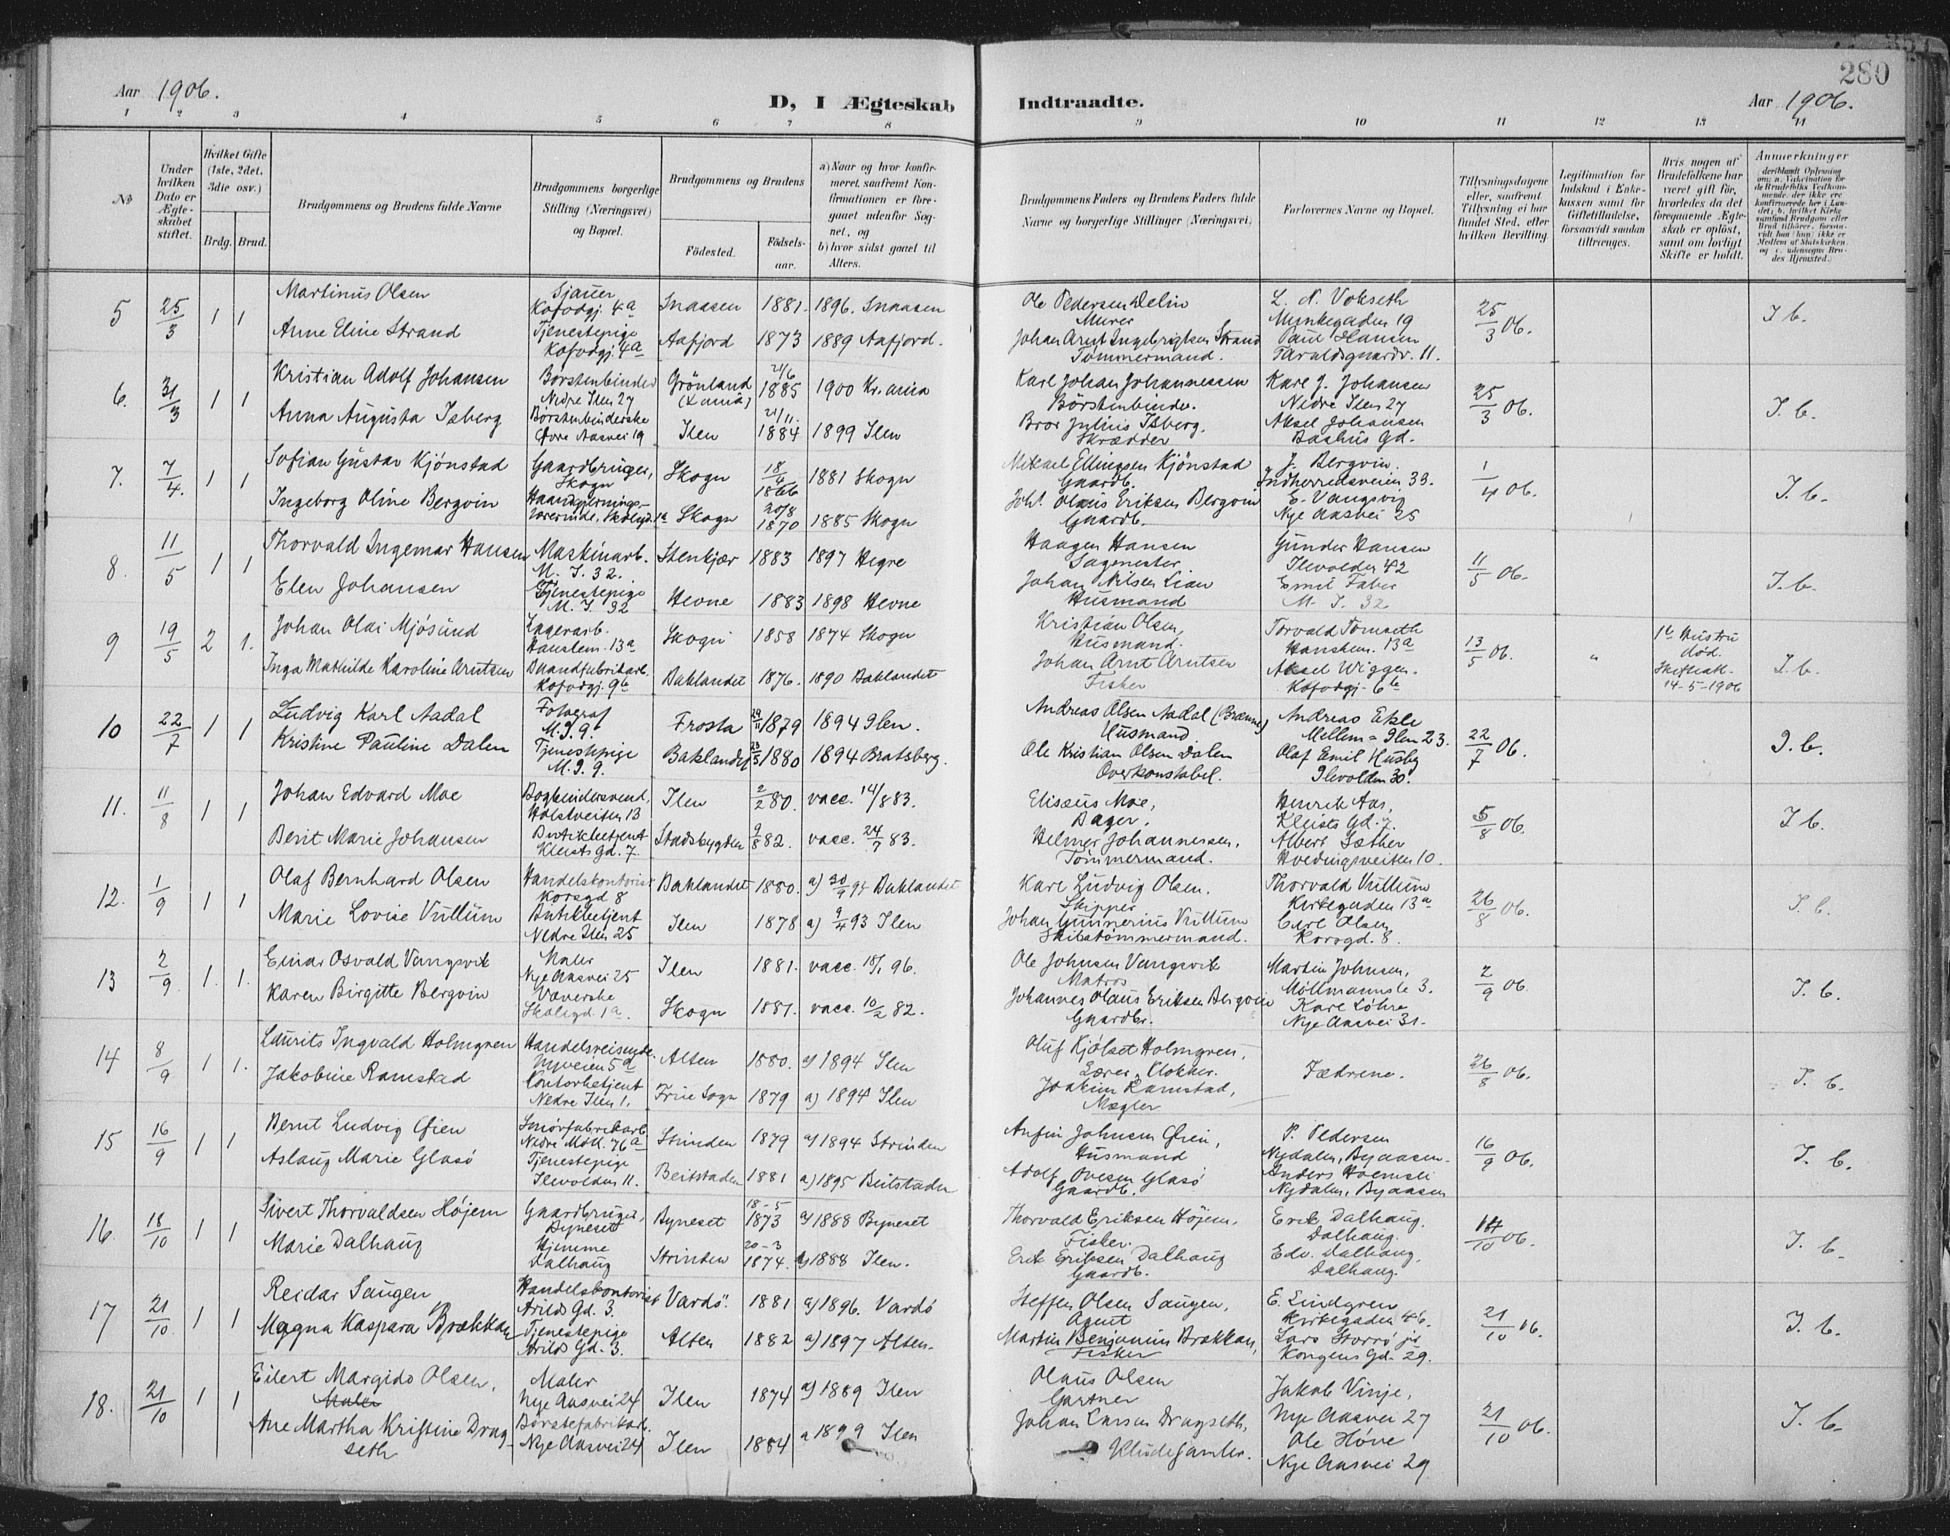 280
Aar 1906.
D, I Ægteskab Indtraadte.
Aar 1906.
1 2 3 4 5 6 7 8 9 10 11 12 13 14
№
Under hvilken Dato er Ægteskabet stiftet.
Hvilket Gifte (1ste, 2det, 3die osv.)
Brdg. Brud.
Brudgommens og Brudens fulde Navne
Brudgommens borgerlige Stilling (Næringsvei) og Bopæl.
Brudgommens og Brudens
Födested.
Födselsaar.
a) Naar og hvor konfirmeret, saafremt Konfirmationen er foregaaet udenfor Sognet, og
b) hvor sidst gaaet til Alters.
Brudgommens Faders og Brudens Faders fulde Navne og borgerlige Stillinger (Næringsvei.)
Forlovernes Navne og Bopæl.
Tillysningsdagene eller, saafremt Tillysning ei har fundet Sted, efter hvilken Bevilling.
Legitimation for Indskud i Enkekassen samt for Giftetilladelse, forsaavidt saadan tiltrænges.
Hvis nogen af Brudefolkene har været gift för, hvorledes da det foregaaende Ægteskab er oplöst, samt om lovligt Skifte er holdt.
Anmærkninger
5 25/3 1 1 Martinus Olsen Sjauer Kofodgj. 4a Snaasen 1881. 1896. Snaasen Ole Pedersen Delin Murer L. N. Vokseth Munkegaden 19 25/3 06. I b.
Anne Eline Strand Tjenestepige Kofodgj. 4a Aafjord 1873 1889 Aafjord. Johan Arnt Ingebrigtsen Strand Tömmermand. Paul Hansen Taraldsgaardv. 11.
6. 31/3 1 1 Kristian Adolf Johansen Börstenbinder Nedre Ilen 27 Grönland 21/6 1885 1900 Kr.ania Karl Johan Johannessen Börstenbinder. Karl J. Johansen Nedre Ilen 27 25/3 06. I. b.
Anna Augusta Isberg Börstenbinderske Övre Aasvei 19 Ilen 21/11. 1884 1899 Ilen Bror Julius Isberg, Skrædder Aksel Johansen Bashus Gd.
7. 7/4. 1 1 Sofian Gustav Kjönstad Gaardbruger, Skogn Skogn 18/4 1866 1881 Skogn Mikael Ellingsen Kjönstad Gaardb. J. Bergvin. Indherredsveien 33. 1/4 06. I. b.
Ingeborg Oline Bergvin Haandgjerningslærerinde, Skolegd. 1a Skogn 20/8 1870 1885 Skogn Joh. Olaus Eriksen Bergvin Gaardb. E. Vangsvig Nye Aasvei 25
8. 11/5 1 1 Thorvald Ingemar Hansen Maskinarb. M. I. 32. Stenkjær 1883 1897 Hegre Haagen Hansen Sagmester Gunder Hansen Ilevolden 42 11/5 06. I. b.
Elen Johansen Tjenestepige M. I. 32 Hevne 1883 1898 Hevne Johan Nilsen Lian Husmand Emil Faber M. I. 32
9 19/5 2 1. Johan Olai Mjösund Lagerarb. Hanstem. 13a Skogn 1858 1874 Skogn Kristian Olsen, Husmand. Torvald Tomseth Hanskem. 13a 13/5 06. " 1e Hustru död. Skifteatt. 14-5-1906 I. b.
Inga Mathilde Karoline Arntsen Kofodgj. 9b Baklandet 1876. 1890 Baklandet Johan Arnt Arntsen Fisker Aksel Wiggen. Kofodgj. 6b
10 22/7 1 1 Ludvig Karl Aadal Fotograf M. I. 9. Frosta 1879 1894 Ilen. Andreas Olsen Aadal Husmand. Andreas Ekle Mellem-Ilen 23. 22/7 06. I. b.
Kristine Pauline Dalen Tjenestepige M. I. 9. Baklandet 23/5 1880 1894 Bratsberg. Ole Kristian Olsen Dalen Overkonstabel. Olaf Emil Husby Ilevolden 30.
11. 11/8 1 1 Johan Edvard Moe Bogbindersvend, Holstveiten 13 Ilen 2/2 80. vacc. 14/8 83. Elisæus Moe, Bager. Henrik Aas, Kleists Gd. 7. 5/8 06. I b.
Berit Marie Johansen Butikbetjent Kleists Gd. 7. Stadsbygden 9/8 82. vacc. 24/7 83. Helmer Johannessen, Tömmermand. Albert Sæther Hvedingsveiten 10.
12. 1/9 1 1 Olaf Bernhard Olsen Handelskontorist Korsgd 8 Baklandet 1880. a) 30/9 94 Baklandet Karl Ludvig Olsen. Skipper Thorvald Vullum Kirkegaden 13a 26/8 06. I. b.
Marie Lovise Vullum Butikbetjent Nedre Ilen 25 Ilen 1878 a) 9/4 93 Ilen Johan Gunnerius Vullum Skibstömmermand. Carl Olsen Korsgd. 8.
13 2/9. 1. 1. Einar Osvald Vangsvik Maler Nye Aasvei 25 Ilen 1881. vacc. 15/1 96. Ole Johnsen Vangsvik Matros Martin Johnsen, Möllmannsle 3. 2/9 06. I. b.
Karen Birgitte Bergvin Væverske Skolegd. 1a. Skogn 1881. vacc. 10/2 82. Johannes Olaus Eriksen Bergvin Gaardbr. Karl Löhre Nye Aasvei 31.
14 8/9 1 1. Laurits Ingvald Holmgren Handelsreisende. Nyveien 5a Alten 1880. a) 1894 Ilen Oluf Kjölset Holmgren, Lærer, Klokker. Fædrene. 26/8 06. I. b.
Jakobine Ramstad Kontorbetjent Nedre Ilen 1. Frue Sogn 1879 a) 1894 Ilen Joakim Ramstad, Mægler
15 16/9 1 1 Bernt Ludvig Öien Smörfabrikarb. Nedre Möll. 76a Strinden 1879 a) 1894 Strinden Anfin Johnsen Öien, Husmand P. Pedersen Nydalen, Byaasen. 16/9 06. I. b.
Aslaug Marie Glasö Tjenestepige Ilevolden 11. Beitstaden 1881 a) 1895 Beitstaden Adolf Ovesen Glasö Gaardb. Anders Holmsli Nydalen, Byaasen
16. 18/10 1 1 Sivert Thorvaldsen Höjem Gaardbruger, Byneset Byneset 18-5 1873 a) 1888 Byneset Thorvald Eriksen Höjem, Fisker. Erik Dalhaug. Dalhaug. 14/10 06. I. b
Marie Dalhaug Hjemme Dalhaug Strinden 20-3 1874. a) 1888 Ilen. Erik Eriksen Dalhaug Gaardb. Edv. Dalhaug, Dalhaug.
17 21/10. 1 1 Reidar Saugen Handelskontorist Arilds Gd. 3. Vardö. 1881 a) 1896. Vardö Steffen Olsen Saugen, Agent E. Lindgren Kirkegaden 46. 21/10 06. I. b.
Magna Kaspara Brækkan Tjenestepige Arilds Gd. 3. Alten 1882 a) 1897 Alten. Martin Benjamin Brækkan, Fisker Lars Storrö jr Kongens Gd. 29.
18. 21/10 1 1 Eilert Margido Olsen, Maler Maler Nye Aasvei 24 Ilen 1874 a) 1889 Ilen Olaus Olsen Gartner Jakob Vinje, Nye Aasvei 27 21/10 06. I. b.
Ane Martha Kristine Dragseth Börstefabrikarb. Nye Aasvei 24 Ilen 1884 a 1899 Ilen Johan Larsen Dragseth, Kludesamler. Ole Höve Nye Aasvei 29